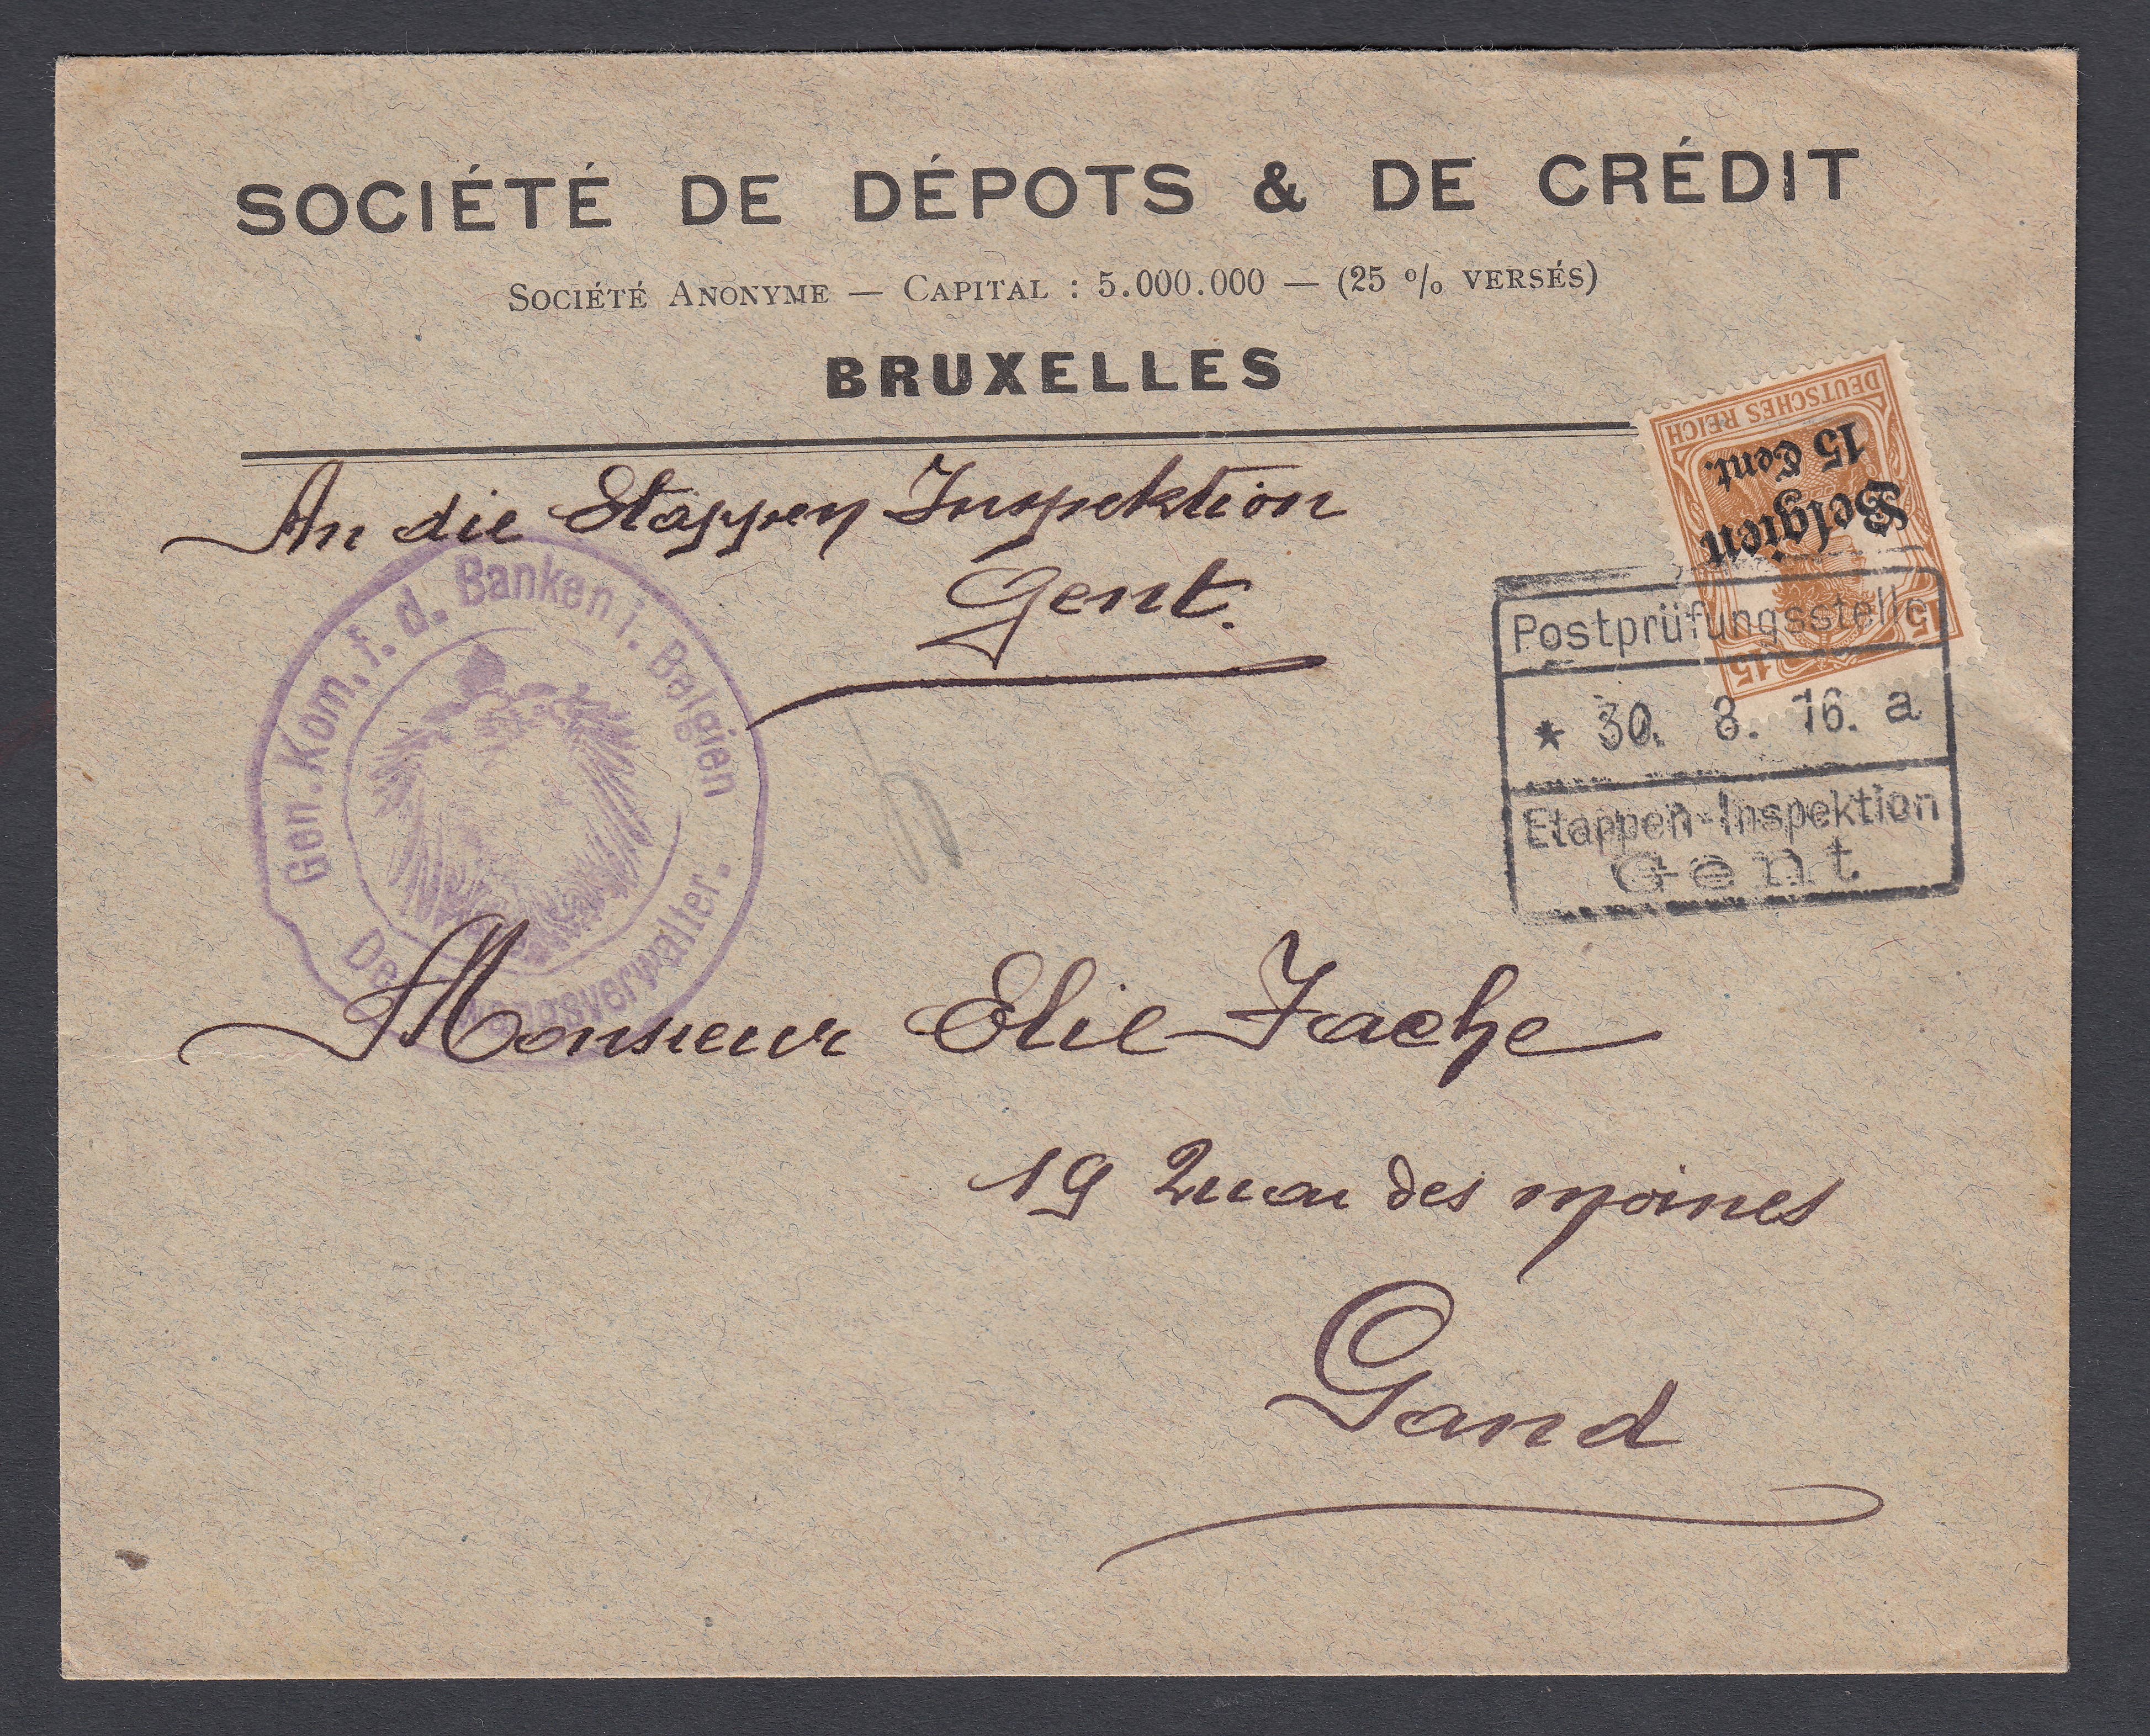 SOCIÉTÉ DE DÉPOTS & DE CRÉDIT
SOCIÉTÉ ANONYME — CAPITAL : 5.000.000 — (25 % VERSÉS)
BRUXELLES
DEUTSCHES REICH
Belgien
15 Cent.
15 15
An die Etappen Inspektion
Gent.
Gen. Kom. f. d. Banken i. Belgien
Der Zwangsverwalter.
Postprüfungsstelle
* 30. 8. 16. a
Etappen-Inspektion
Gent
Monsieur Elie Fache
19 Quai des moines
Gand